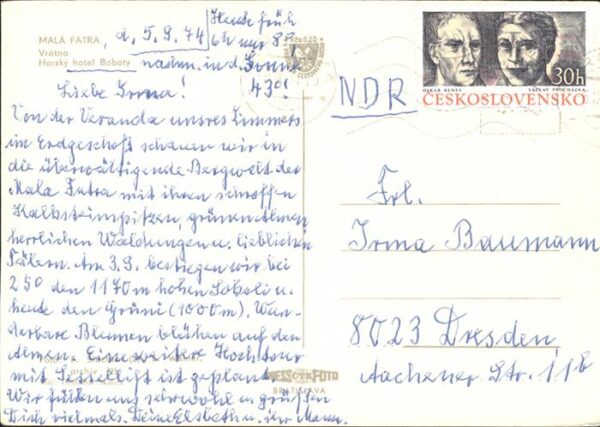 MALÁ FATRA
Vrátna
Horský hotel Boboty
d. 5.9.74
Heute früh
6h nur 8°!
nachm. in d. Sonne
43°!
Liebe Irma!
Von der Veranda unsres Zimmers
im Erdgeschoß schauen wir in
die überwältigende Bergwelt der
Mala Fatra mit ihren schroffen
Kalksteinspitzen, grünen Almen
herrlichen Waldungen u. lieblichen
Tälern. Am 3.9. bestiegen wir bei
25° den 1170 m hohen Soboli u.
heute den Grúni (1000m). Wun-
derbare Blumen blühen auf den
Almen. Eine weitere Hochtour
mit Sessellift ist geplant.
Wir fühlen uns sehr wohl u. grüßen
Dich vielmals. Deine Elsbeth u. ihr Mann.
PRESSFOTO
BRATISLAVA
30h
OSKAR BENEŠ
VÁCLAV PROCHÁZKA
ČESKOSLOVENSKO
NDR
Frl.
Irma Baumann
8023 Dresden
Aachener Str. 11b